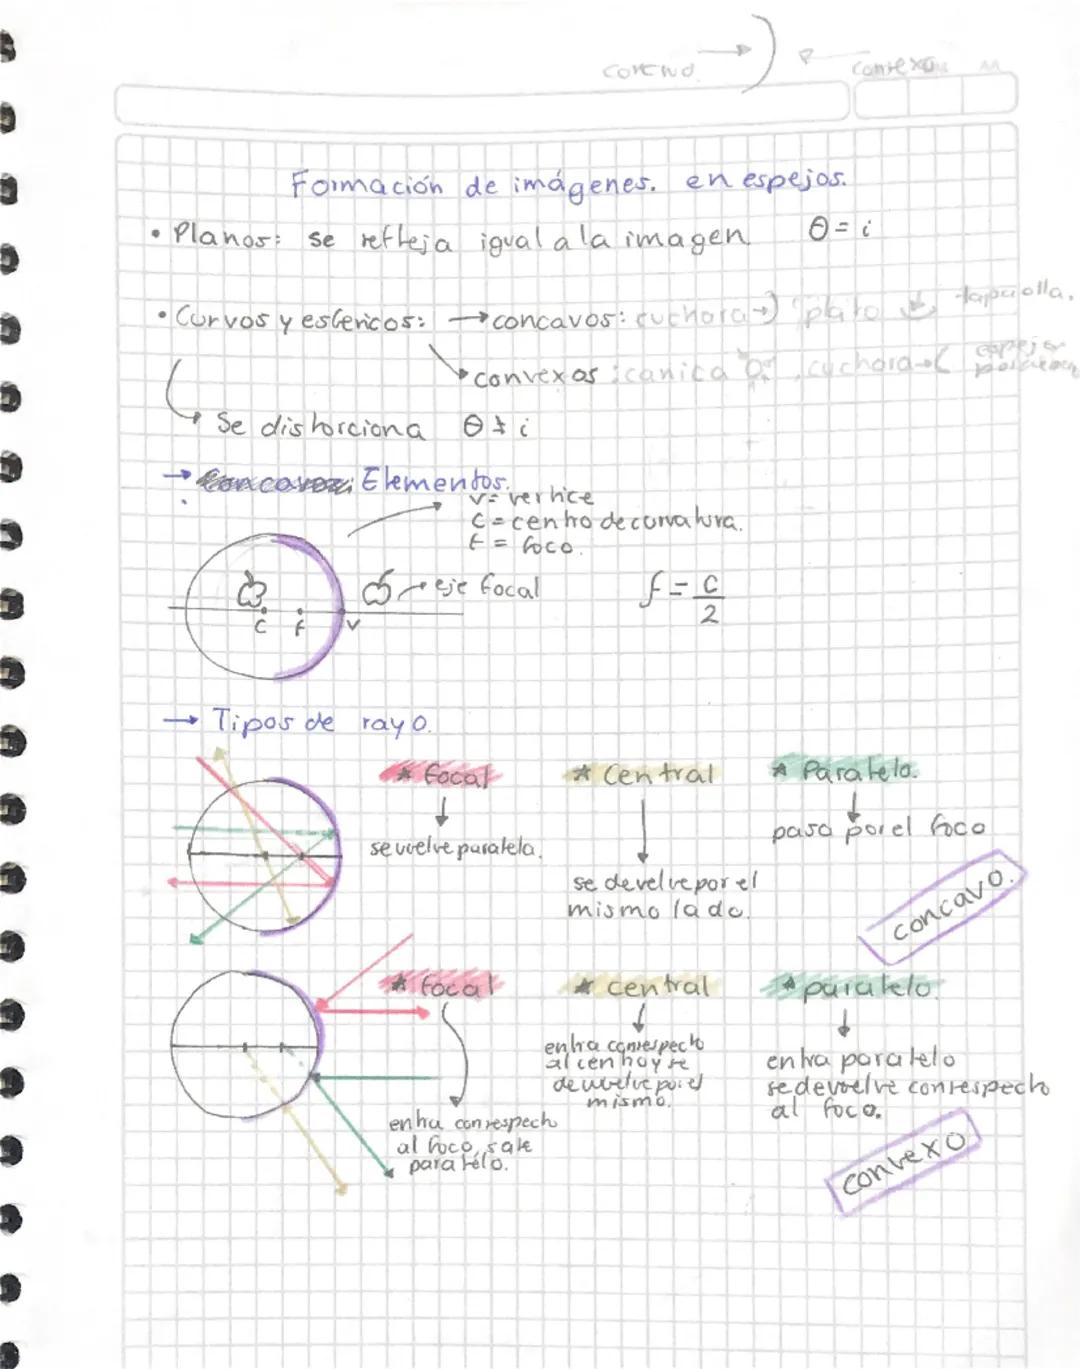 concavo convexo
Formación de imágenes. en espejos.
• Planos: se refleja igual a la imagen θ = i
• Curvos y esfericos: → concavos: cuchara→) plato tapaolla.
convexos: canica cuchara→( espejo
Se distorciona θ ≠ i
→ Concavos: Elementos.
V = vertice
C = centro de curvatura.
F = foco.
eje focal
f = C/2
C F V
→ Tipos de rayo.
* focal * Central * Paralelo.
se vuelve paralela.
se devuelve por el
mismo lado.
pasa por el foco
concavo.
* focal * central * paralelo.
entra con respecto
al foco, sale
paralelo.
entra con respecto
al centro y se
devuelve por el
mismo.
entra paralelo
se devuelve con respecto
al foco.
convexo